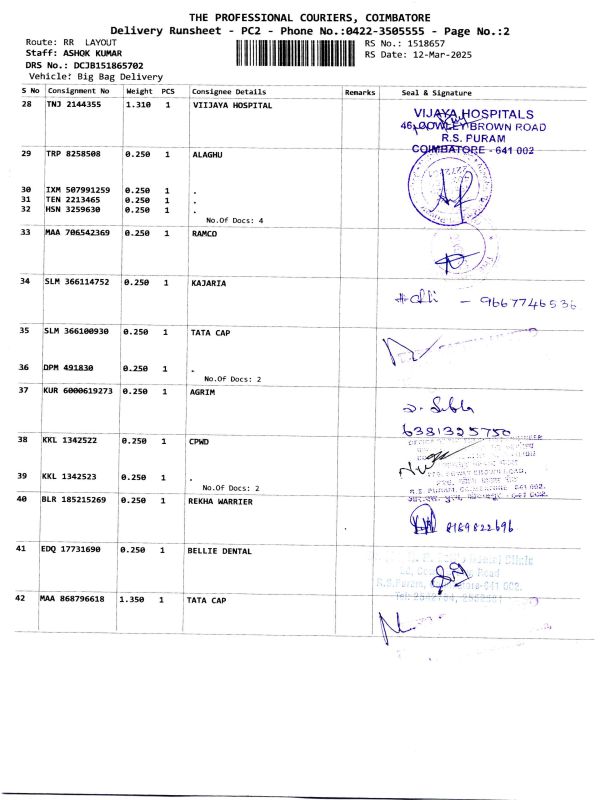 THE PROFESSIONAL COURIERS, COIMBATORE
Delivery Runsheet - PC2 - Phone No.:0422-3505555 - Page No.:2
Route: RR LAYOUT
RS No.: 1518657
Staff: ASHOK KUMAR
RS Date: 12-Mar-2025
DRS No.: DCJB151865702
Vehicle: Big Bag Delivery
S No Consignment No Weight PCS Consignee Details Remarks Seal & Signature
28 TNJ 2144355 1.310 1 VIIJAYA HOSPITAL
VIJAYA HOSPITALS
46, COWLEY BROWN ROAD
R.S. PURAM
COIMBATORE - 641 002
29 TRP 8258508 0.250 1 ALAGHU
30 IXM 507991259 0.250 1 .
31 TEN 2213465 0.250 1 .
32 HSN 3259630 0.250 1 .
No.Of Docs: 4
33 MAA 706542369 0.250 1 RAMCO
34 SLM 366114752 0.250 1 KAJARIA
- 9667746536
35 SLM 366100930 0.250 1 TATA CAP
36 DPM 491830 0.250 1 .
No.Of Docs: 2
37 KUR 6000619273 0.250 1 AGRIM
6381325750
38 KKL 1342522 0.250 1 CPWD
39 KKL 1342523 0.250 1 .
No.Of Docs: 2
R.S PURAM, COIMBATORE - 641 002.
40 BLR 185215269 0.250 1 REKHA WARRIER
8169822696
41 EDQ 17731690 0.250 1 BELLIE DENTAL
Clinic
Road
R.S.Puram, 641 002.
42 MAA 868796618 1.350 1 TATA CAP